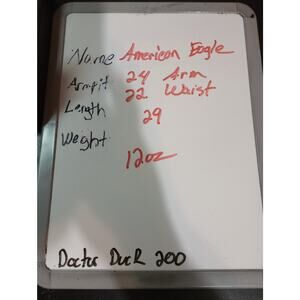 Name American Eagle
Armpit 24 Arm
22 Waist
Length 29
Weight
12oz
Doctor DucR 200